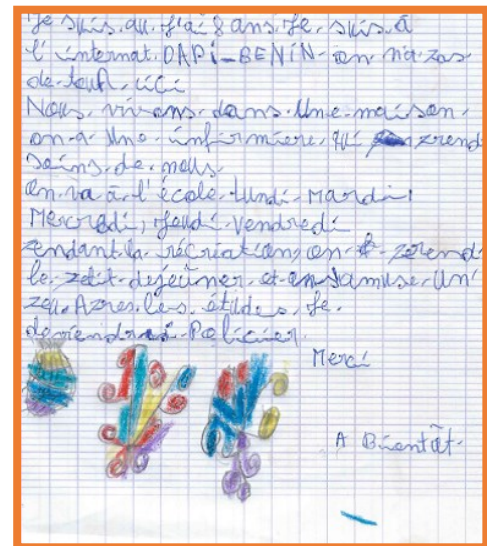 Je suis. au. J'ai 8 ans. Je. suis. à
l'internat. DAPI-BENIN. on n'a. pas
de. tout. ici
Nous. vivons. dans. Une. maison.
on. a. Une. infirmiere. qui prend
soins. de. nous.
On. va à. l'école. Lundi. Mardi,
Mercredi, Jeudi. Vendredi
Pendant. la. récréation, on. prend
le. petit. dejeûner. et. on. s'amuse. Un
peu. Apres. les. études, Je.
deviendrai. Policier.
Merci
A Bientôt.